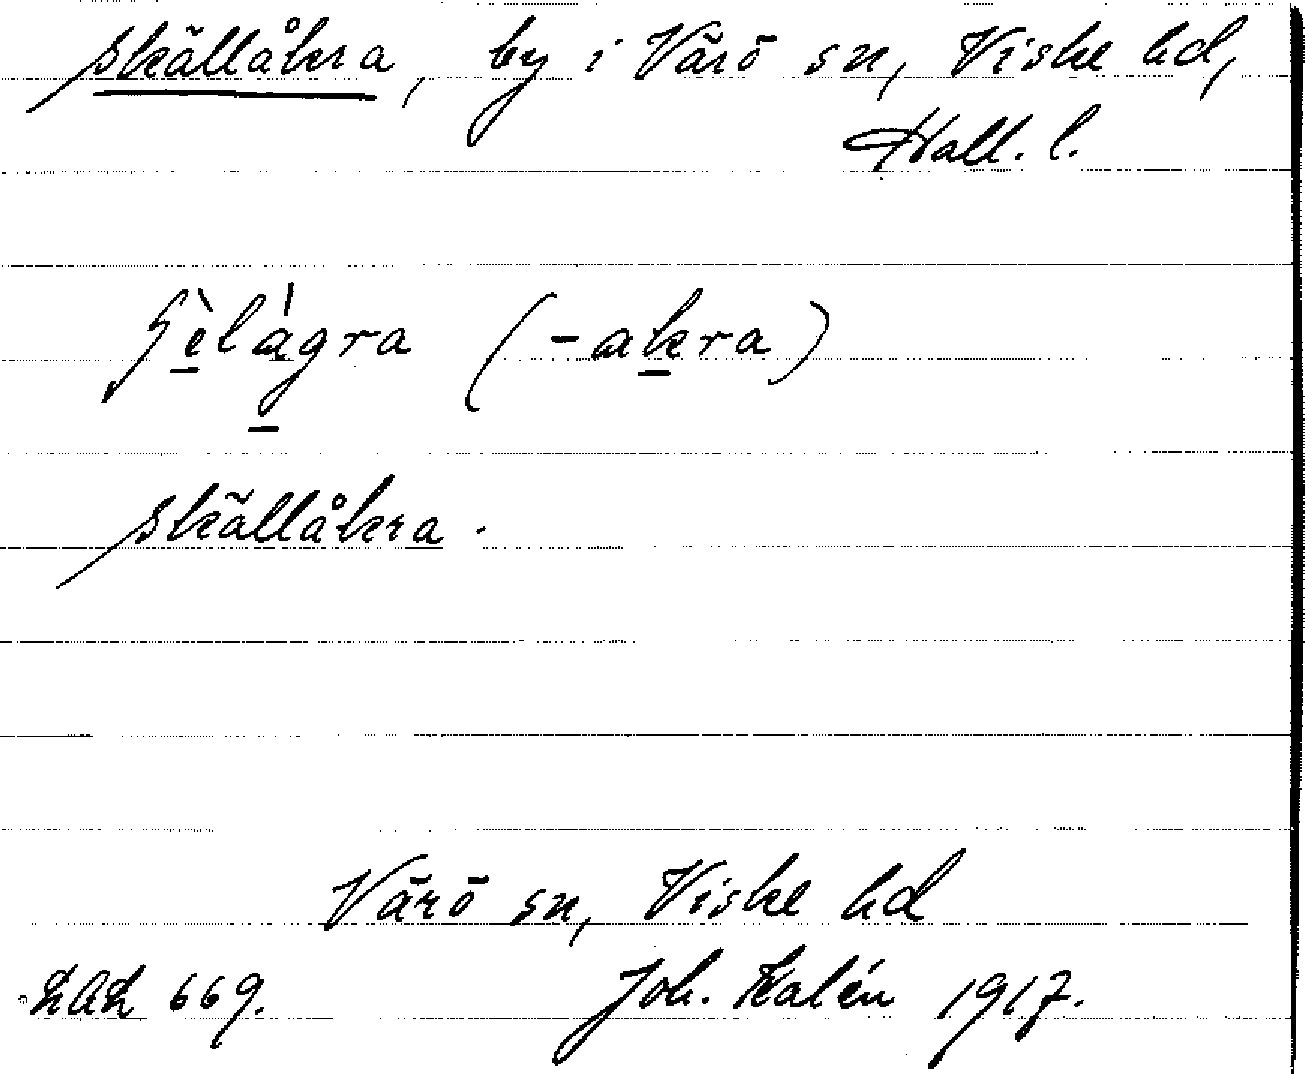 Skällåkra, by i Värö sn, Viske hd,
Hall. l.
(-akra)
Skällåkra.
Värö sn, Viske hd
LAL 669. Joh. Kalén 1917.